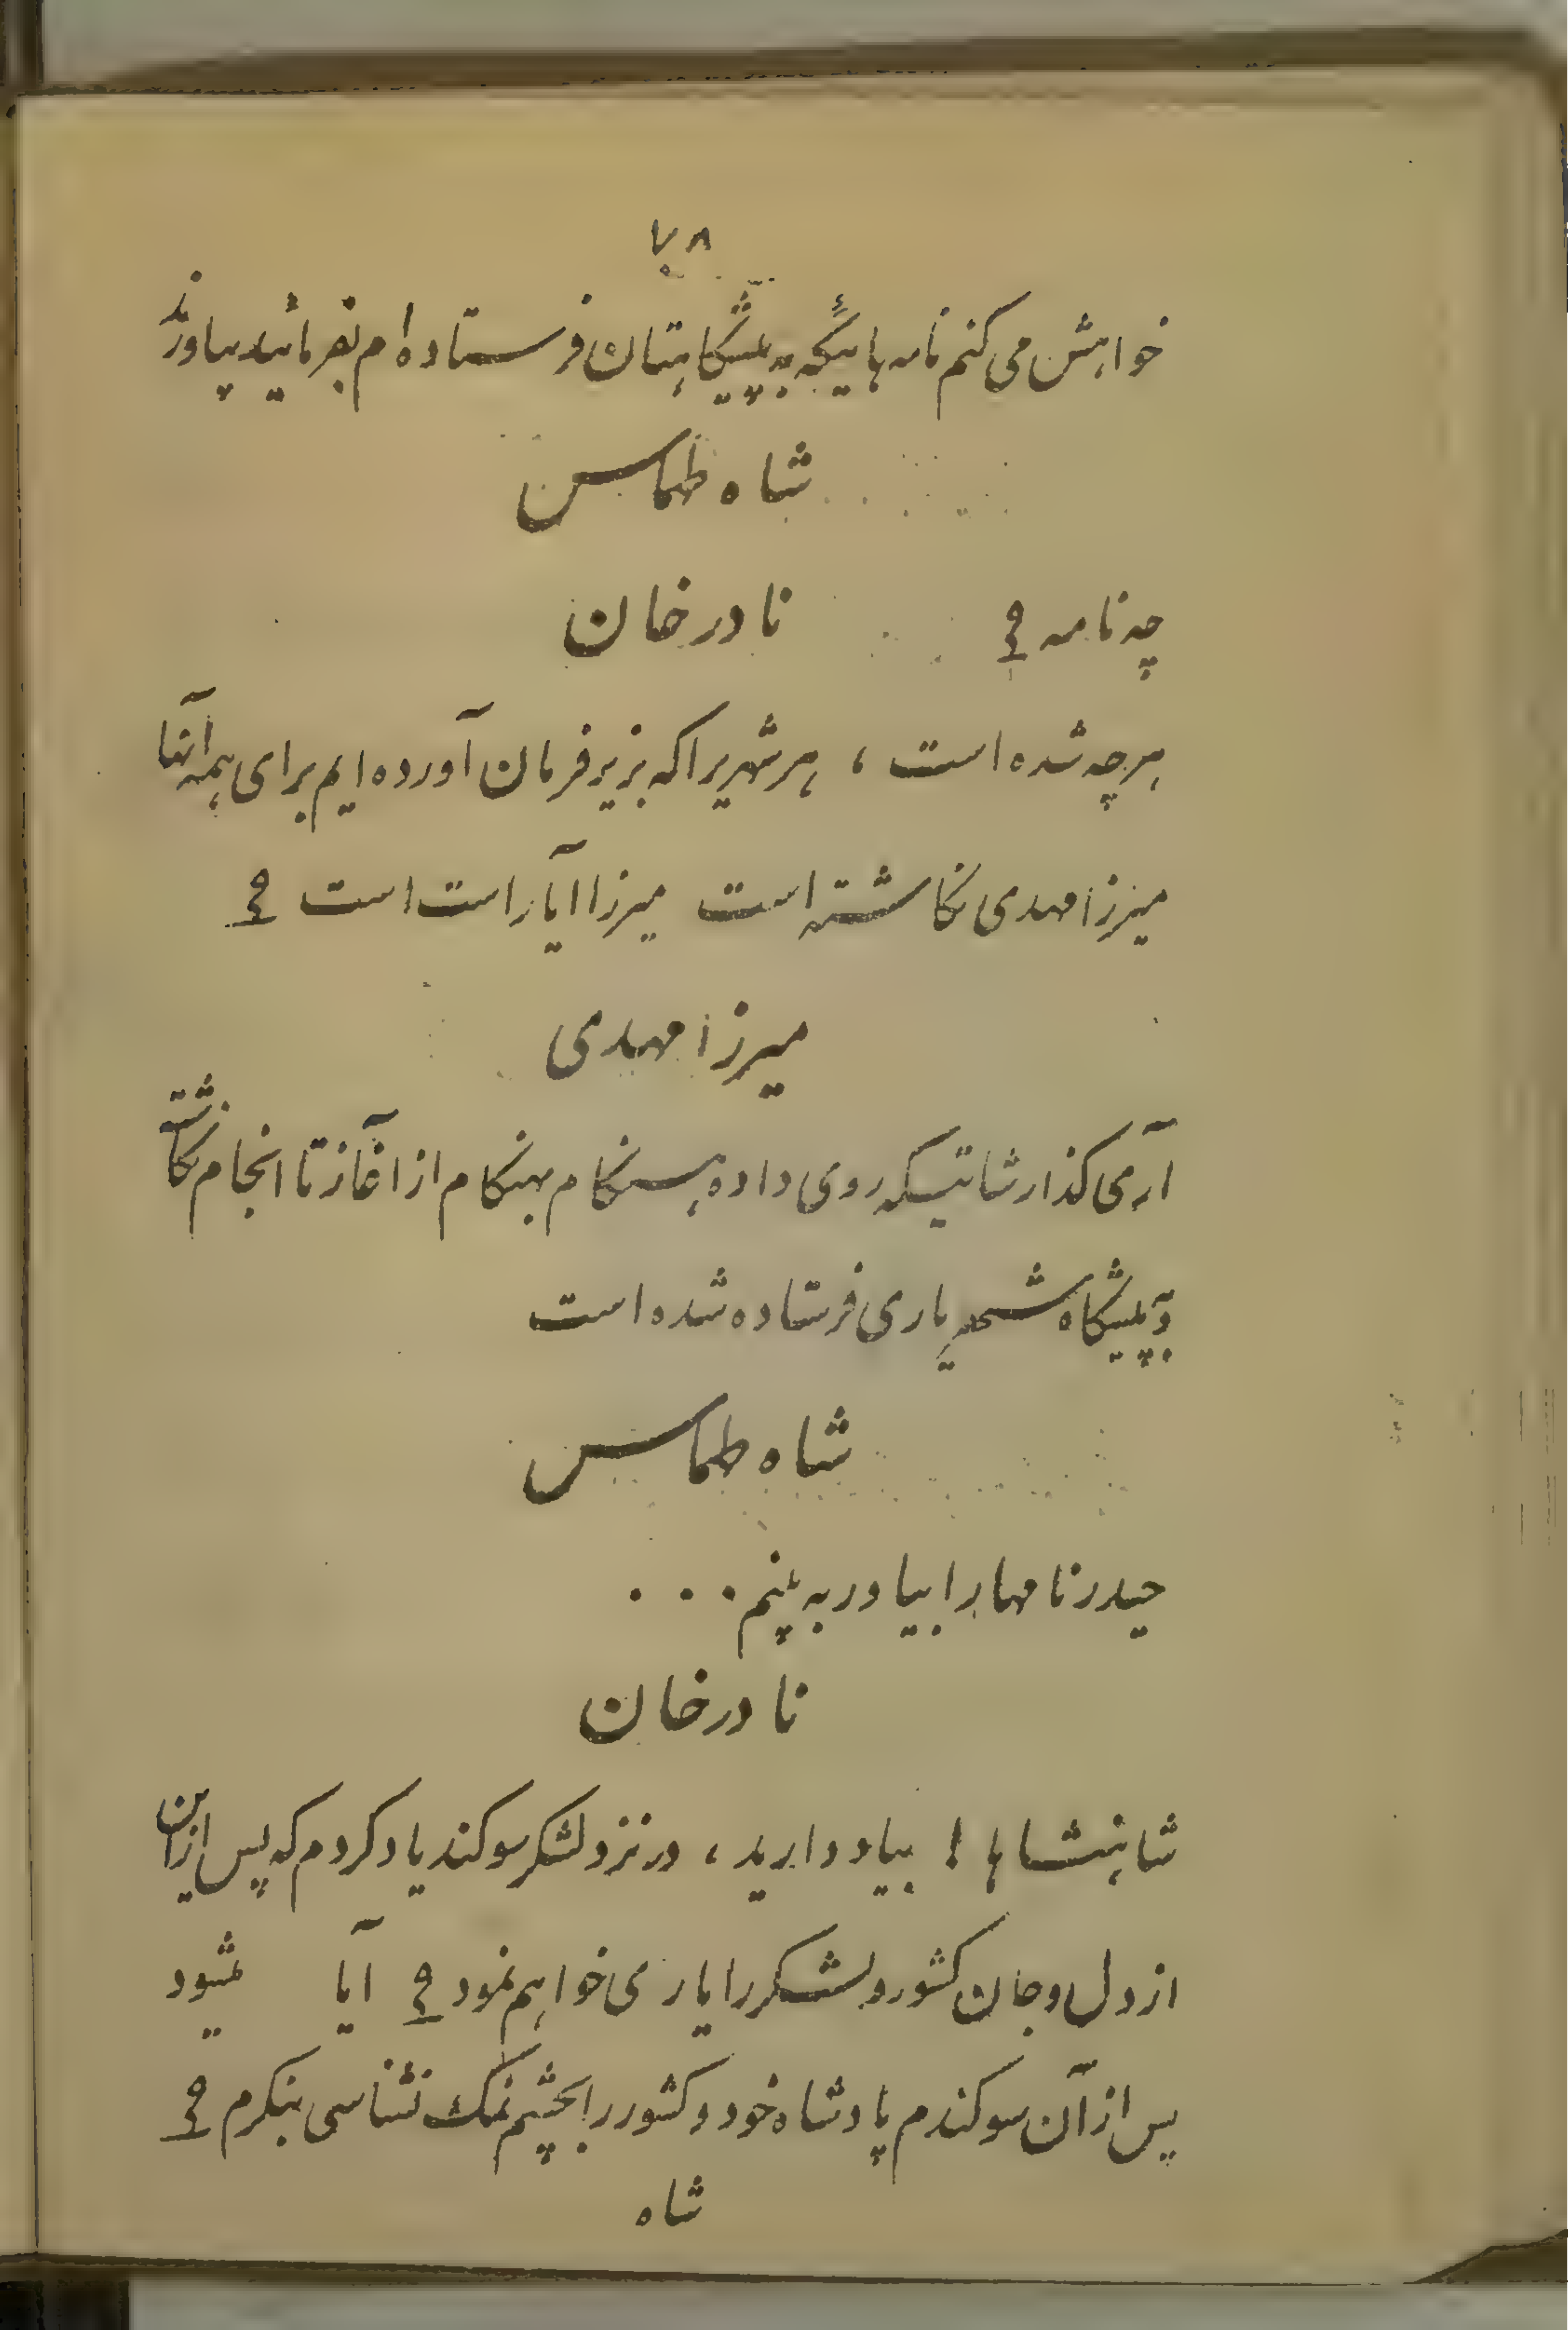 ۷۸
خواهش می کنم نامه هائیکه به پیشگاهتان فرستاده ام بفرمائید بیاورند
شاه طهماسب
چه نامه ؟ نادر خان
هرچه شده است ، هر شهریرا که بزیر فرمان آورده ایم برای همه آنها
میرزا مهدی نگاشته است میرزا آیا راست است ؟
میرزا مهدی
آری گذارشاتیکه روی داده هنگام بهنگام از آغاز تا انجام نگاشته
و به پیشگاه شهریاری فرستاده شده است
شاه طهماسب
حیدر نامها را بیاور به بینم . . .
نادر خان
شاهنشاها ! بیاد دارید ، در نزد لشکر سوکند یاد کردم که پس از این
از دل و جان کشور و لشکر را یاری خواهم نمود ؟ آیا میشود
پس از آن سوکندم پادشاه خود و کشور را بچشم نمک نشناسی بنکرم ؟
شاه